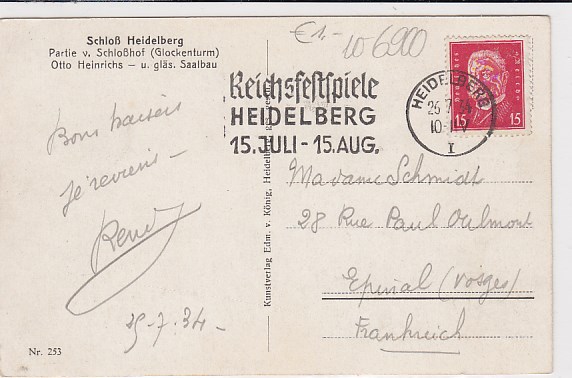 Schloß Heidelberg
Partie v. Schloßhof (Glockenturm)
Otto Heinrichs – u. gläs. Saalbau
€1.-
10-6900
Reichsfestspiele
HEIDELBERG
15.JULI - 15.AUG.
HEIDELBERG
25.7.34
10-11V
I
Deutsches Reich
15 15
Bons baisers
Je reviens –
René
25-7.34 –
Kunstverlag Edm. v. König, Heidelberg ges. gesch.
Madame Schmidt
28 Rue Paul Oulmont
Epinal (Vosges)
Frankreich
Nr. 253